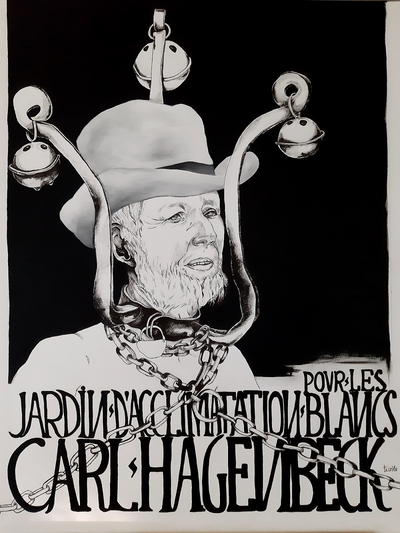 POUR·LES
JARDIN·D'ACCLIMATATION·BLANCS
CARL·HAGENBECK